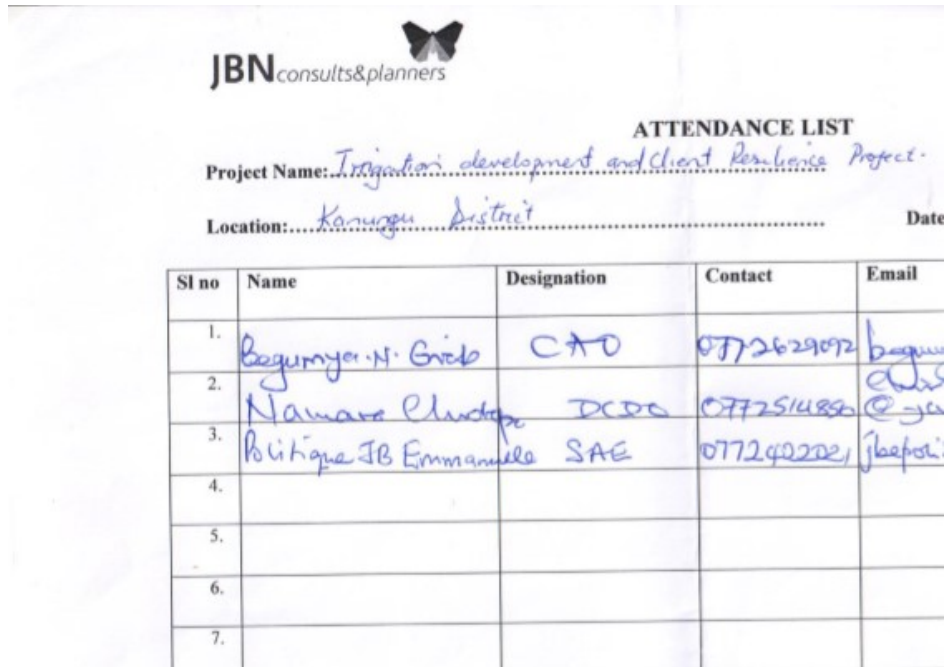 JBN consults&planners
ATTENDANCE LIST
Project Name: Irrigation development and Client Resilience Project.
Location: Kanungu District
Date
Sl no Name Designation Contact Email
1. Begumya N. CAO 0772629092
2. Namara DCDO
3. Politique JB Emmanuele SAE 0772402021
4.
5.
6.
7.